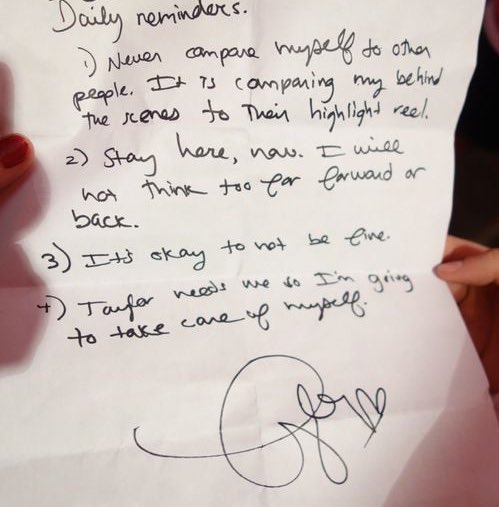 Daily reminders.
1) Never compare myself to other
people. It is comparing my behind
the scenes to their highlight reel.
2) Stay here, now. I will
not think too far forward or
back.
3) It's okay to not be fine.
4) Taylor needs me so I'm going
to take care of myself.